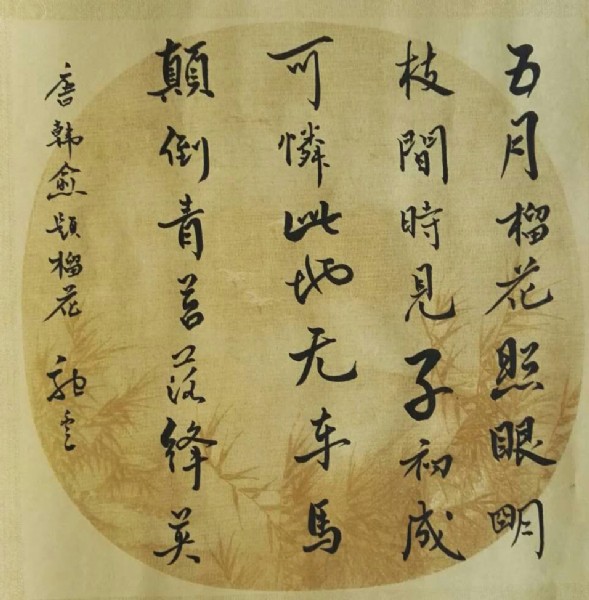 五月榴花照眼明
枝間時見子初成
可憐此地无车馬
顛倒青苔落絳英
唐韓愈題榴花